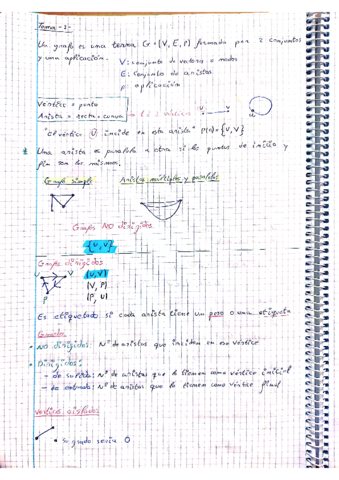 Tema -2-
Un grafo es una terna G=(V, E, P) formada por 2 conjuntos
y una aplicación.
V: conjunto de vertices o nodos
E: conjunto de aristas
P: aplicación
Vertice = punto
Arista = recta o curva → 1 ó 2 vértices
U V
U
"El vértice U incide en esta arista" P(a)={U,V}
* Una arista es paralela a otra si los puntos de inicio y
fin son los mismos.
Grafo simple
Aristas múltiples y paralelas
Grafos NO dirigidos
{U,V}
Grafos dirigidos
U V
P
(U,V)
(V,P)
(P,U)
Es etiquetado si cada arista tiene un peso o una etiqueta
Grados
• NO dirigidos: Nº de aristas que inciden en ese vértice
• Dirigidos:
- de salida: Nº de aristas que lo tienen como vértice inicial
- de entrada: Nº de aristas que lo tienen como vértice final
Vertices aislados
Su grado sería 0